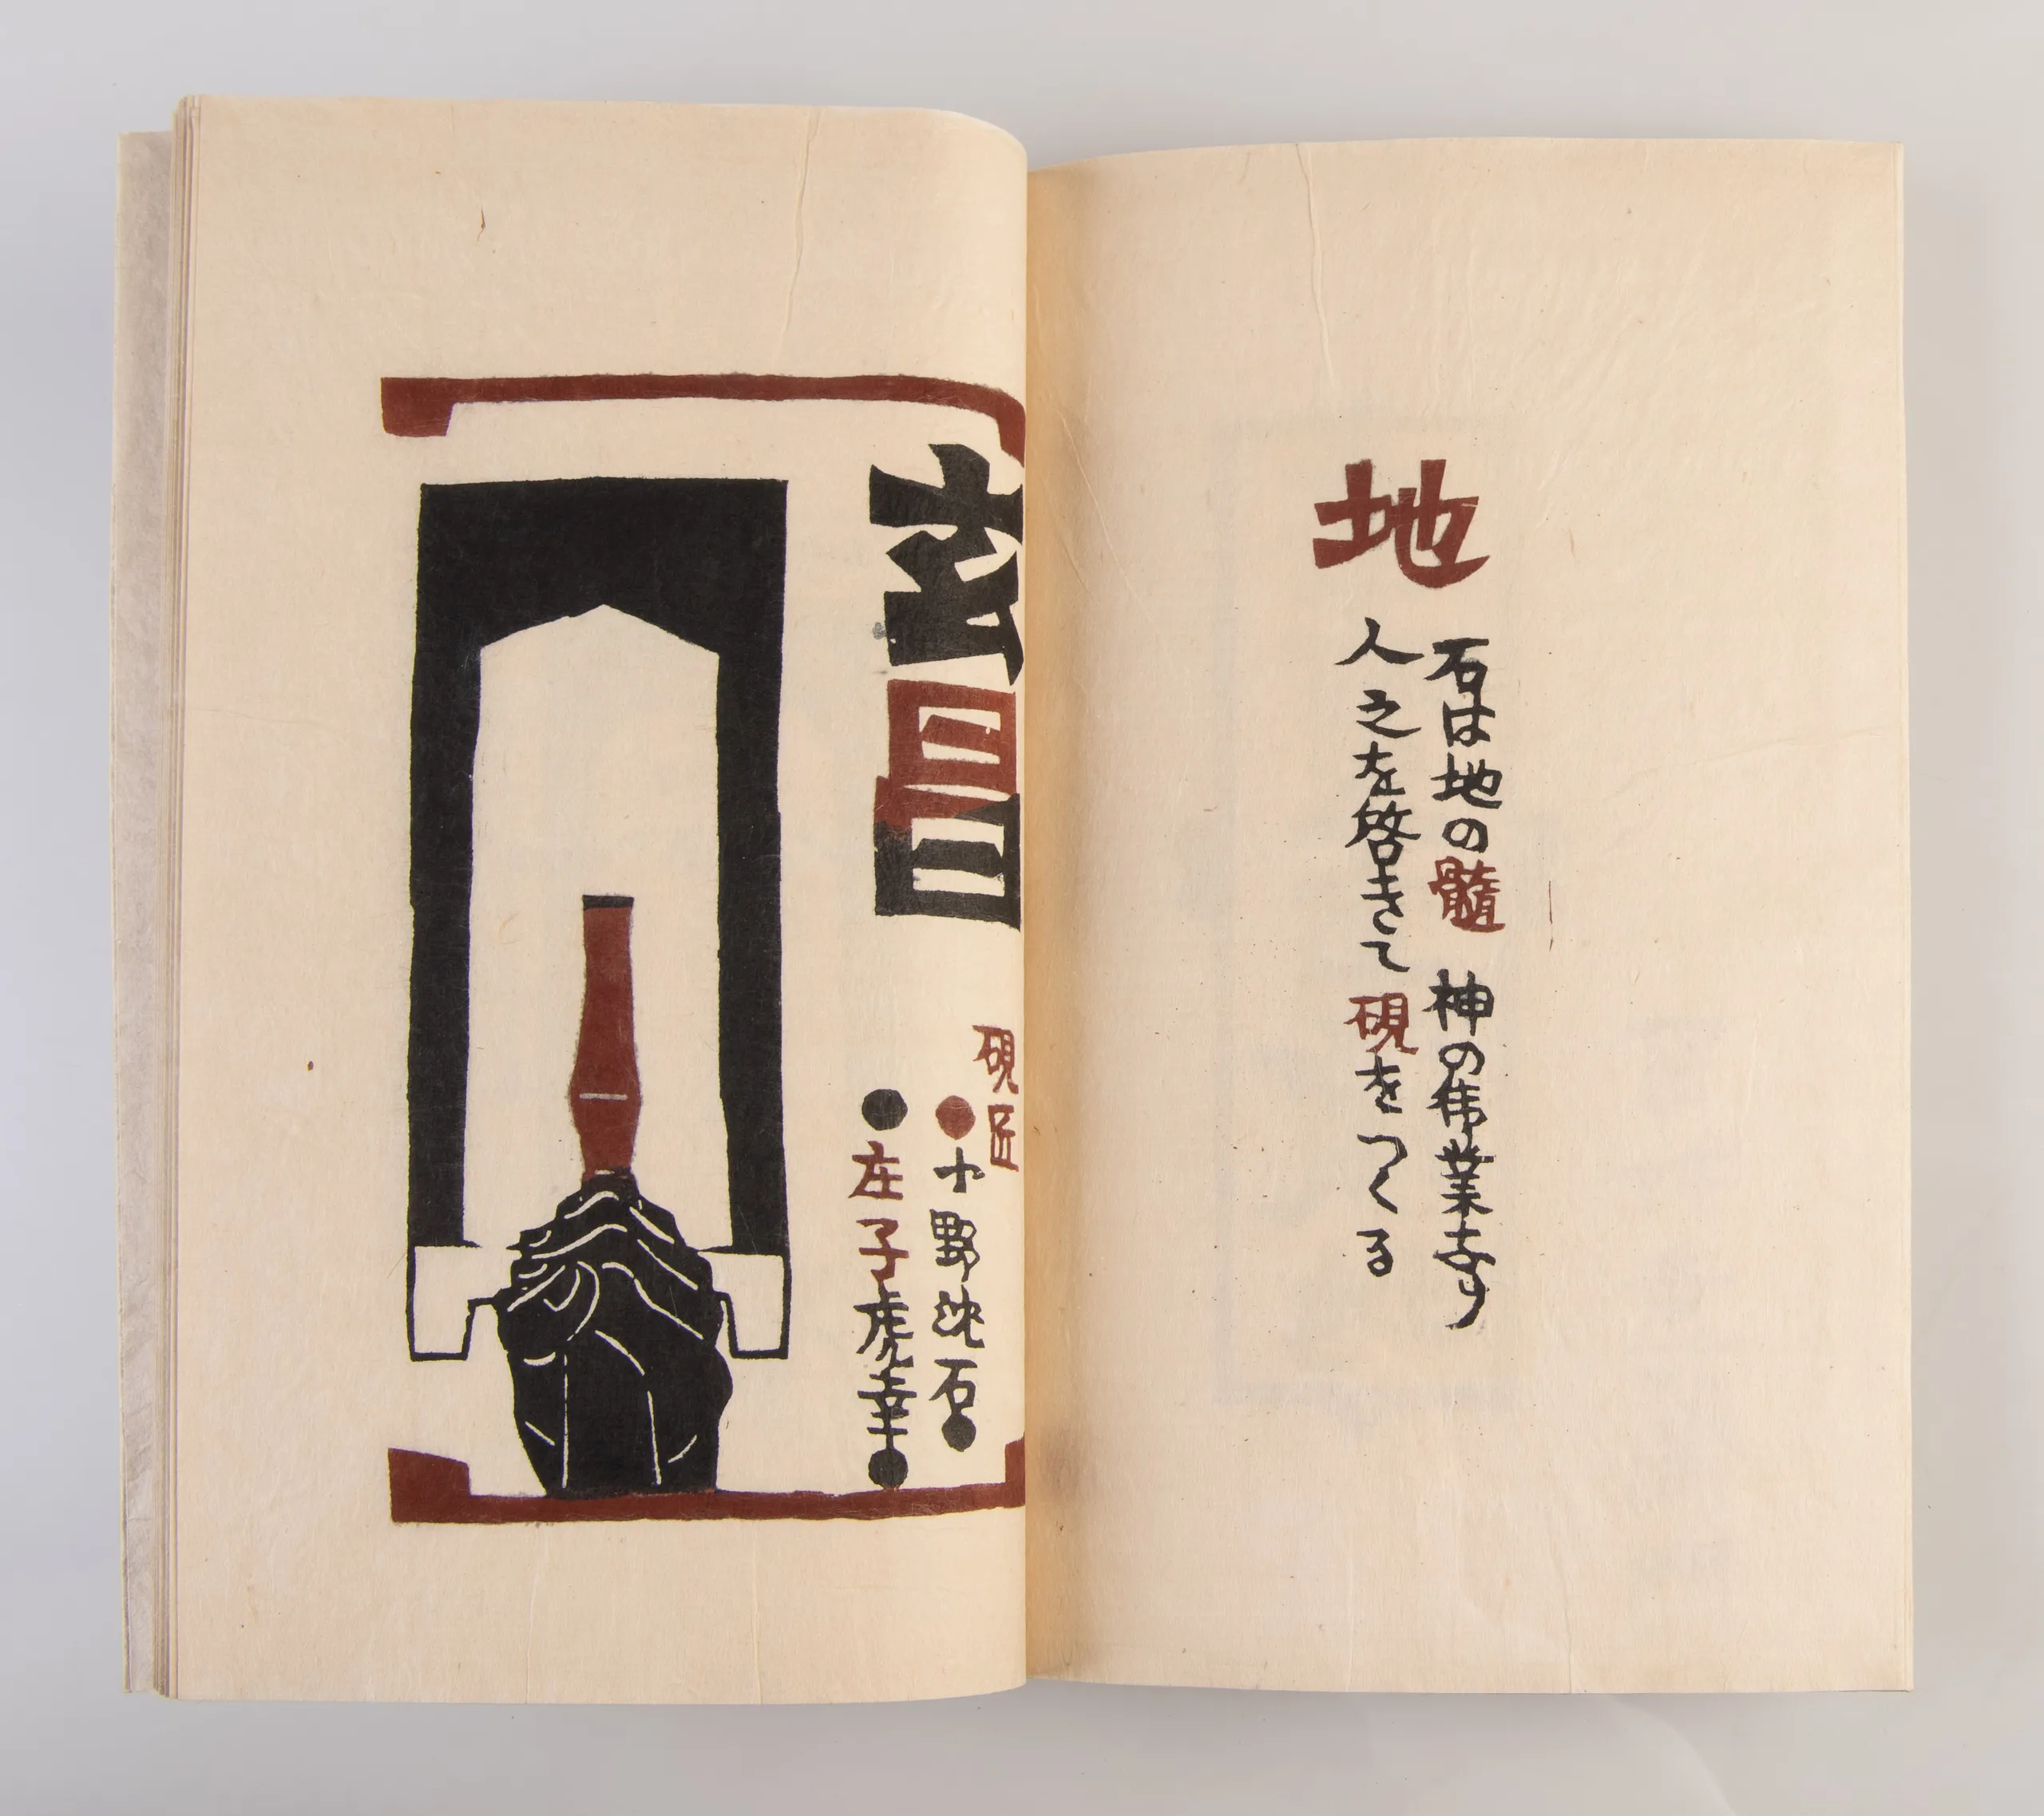 地
石は地の髄 神の偉業なり
人之を啓きて硯をつくる
玄昌
硯匠
●小野沈石●
●庄子虎幸●